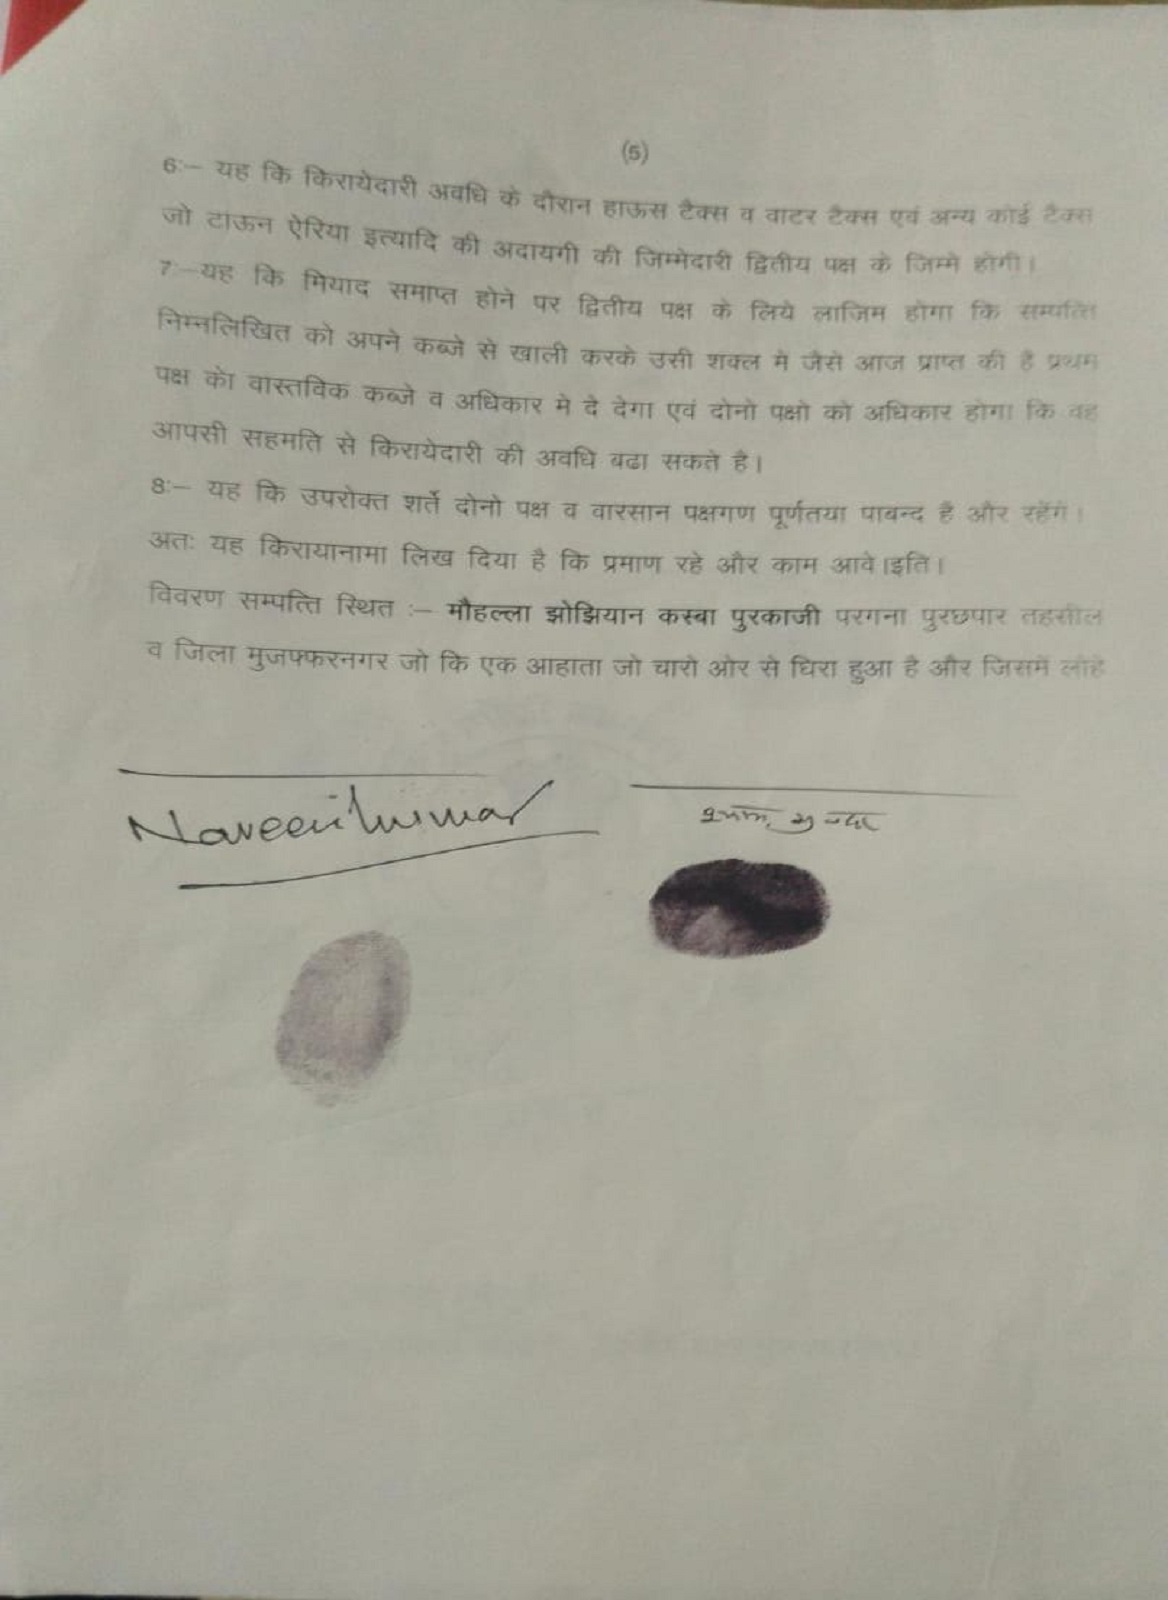 (5)
6:- यह कि किरायेदारी अवधि के दौरान हाऊस टैक्स व वाटर टैक्स एवं अन्य कोई टैक्स
जो टाऊन ऐरिया इत्यादि की अदायगी की जिम्मेदारी द्वितीय पक्ष के जिम्मे होगी।
7:-यह कि मियाद समाप्त होने पर द्वितीय पक्ष के लिये लाजिम होगा कि सम्पत्ति
निम्नलिखित को अपने कब्जे से खाली करके उसी शक्ल मे जैसे आज प्राप्त की है प्रथम
पक्ष केा वास्तविक कब्जे व अधिकार मे दे देगा एवं दोनो पक्षो को अधिकार होगा कि वह
आपसी सहमति से किरायेदारी की अवधि बढा सकते है।
8:- यह कि उपरोक्त शर्ते दोनो पक्ष व वारसान पक्षगण पूर्णतया पाबन्द है और रहेंगे।
अतः यह किरायानामा लिख दिया है कि प्रमाण रहे और काम आवे।इति।
विवरण सम्पत्ति स्थित :- मौहल्ला झोझियान कस्बा पुरकाजी परगना पुरछपार तहसील
व जिला मुजफ्फरनगर जो कि एक आहाता जो चारो ओर से घिरा हुआ है और जिसमें लोहे
Naveen Kumar